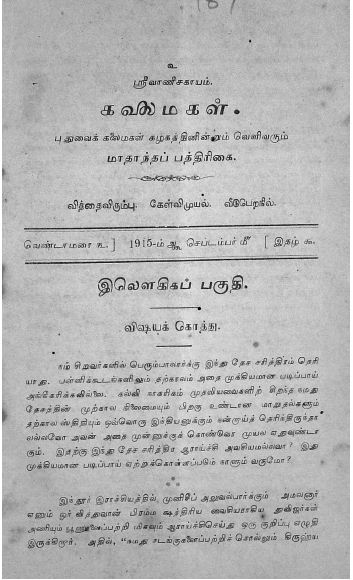 உ
ஸ்ரீவாணீசகாயம்.
கலைமகள்.
புதுவைக் கலைமகள் கழகத்தினின்றும் வெளிவரும்
மாதாந்தப் பத்திரிகை.
வித்தைவிரும்பு. கேள்விமுயல். வீடுபெறநில்.
வெண்டாமரை உ.] 1915-ம் ௵ செப்டம்பர் ௴ [இதழ் ௬.
இலௌகிகப் பகுதி.
விஷயக் கொத்து.
நம் சிறுவர்களில் பெரும்பாலார்க்கு இந்து தேச சரித்திரம் தெரி
யாது. பள்ளிக்கூடங்களிலும் தற்காலம் அதை முக்கியமான படிப்பாய்
அங்கீகரிக்கவில்லை. கல்வி நாகரிகம் முதலியவைகளிற் சிறந்த நமது
தேசத்தின் முற்கால நிலைமையும் பிறகு உண்டான மாறுதல்களும்
தற்கால ஸ்திதியும் ஒவ்வொரு இந்தியனுக்கும் நன்றாய்த் தெரிந்திருந்தா
லல்லவோ அவன் அதை முன்னுக்குக் கொண்டுவர முயல ஏதுவுண்டா
கும். இதற்கு இந்து தேச சரித்திர ஆராய்ச்சி அவசியமல்லவா? இது
முக்கியமான படிப்பாய் ஏற்றுக்கொள்ளப்படும் நாளும் வருமோ?
இந்தூர் இராச்சியத்தில், முனிசீப் அலுவல்பார்க்கும் அமலனூர்
எனும் ஓர் வித்துவான் பிரம்ம க்ஷத்திரிய வைசியராகிய துவிஜர்கள்
அணியும் பூணூலைப்பற்றி மிகவும் ஆராய்ச்சிசெய்து ஒரு குறிப்பு எழுதி
இருக்கிறார். அதில், "நமது சடங்குகளைப்பற்றிச் சொல்லும் கிருஹ்ய